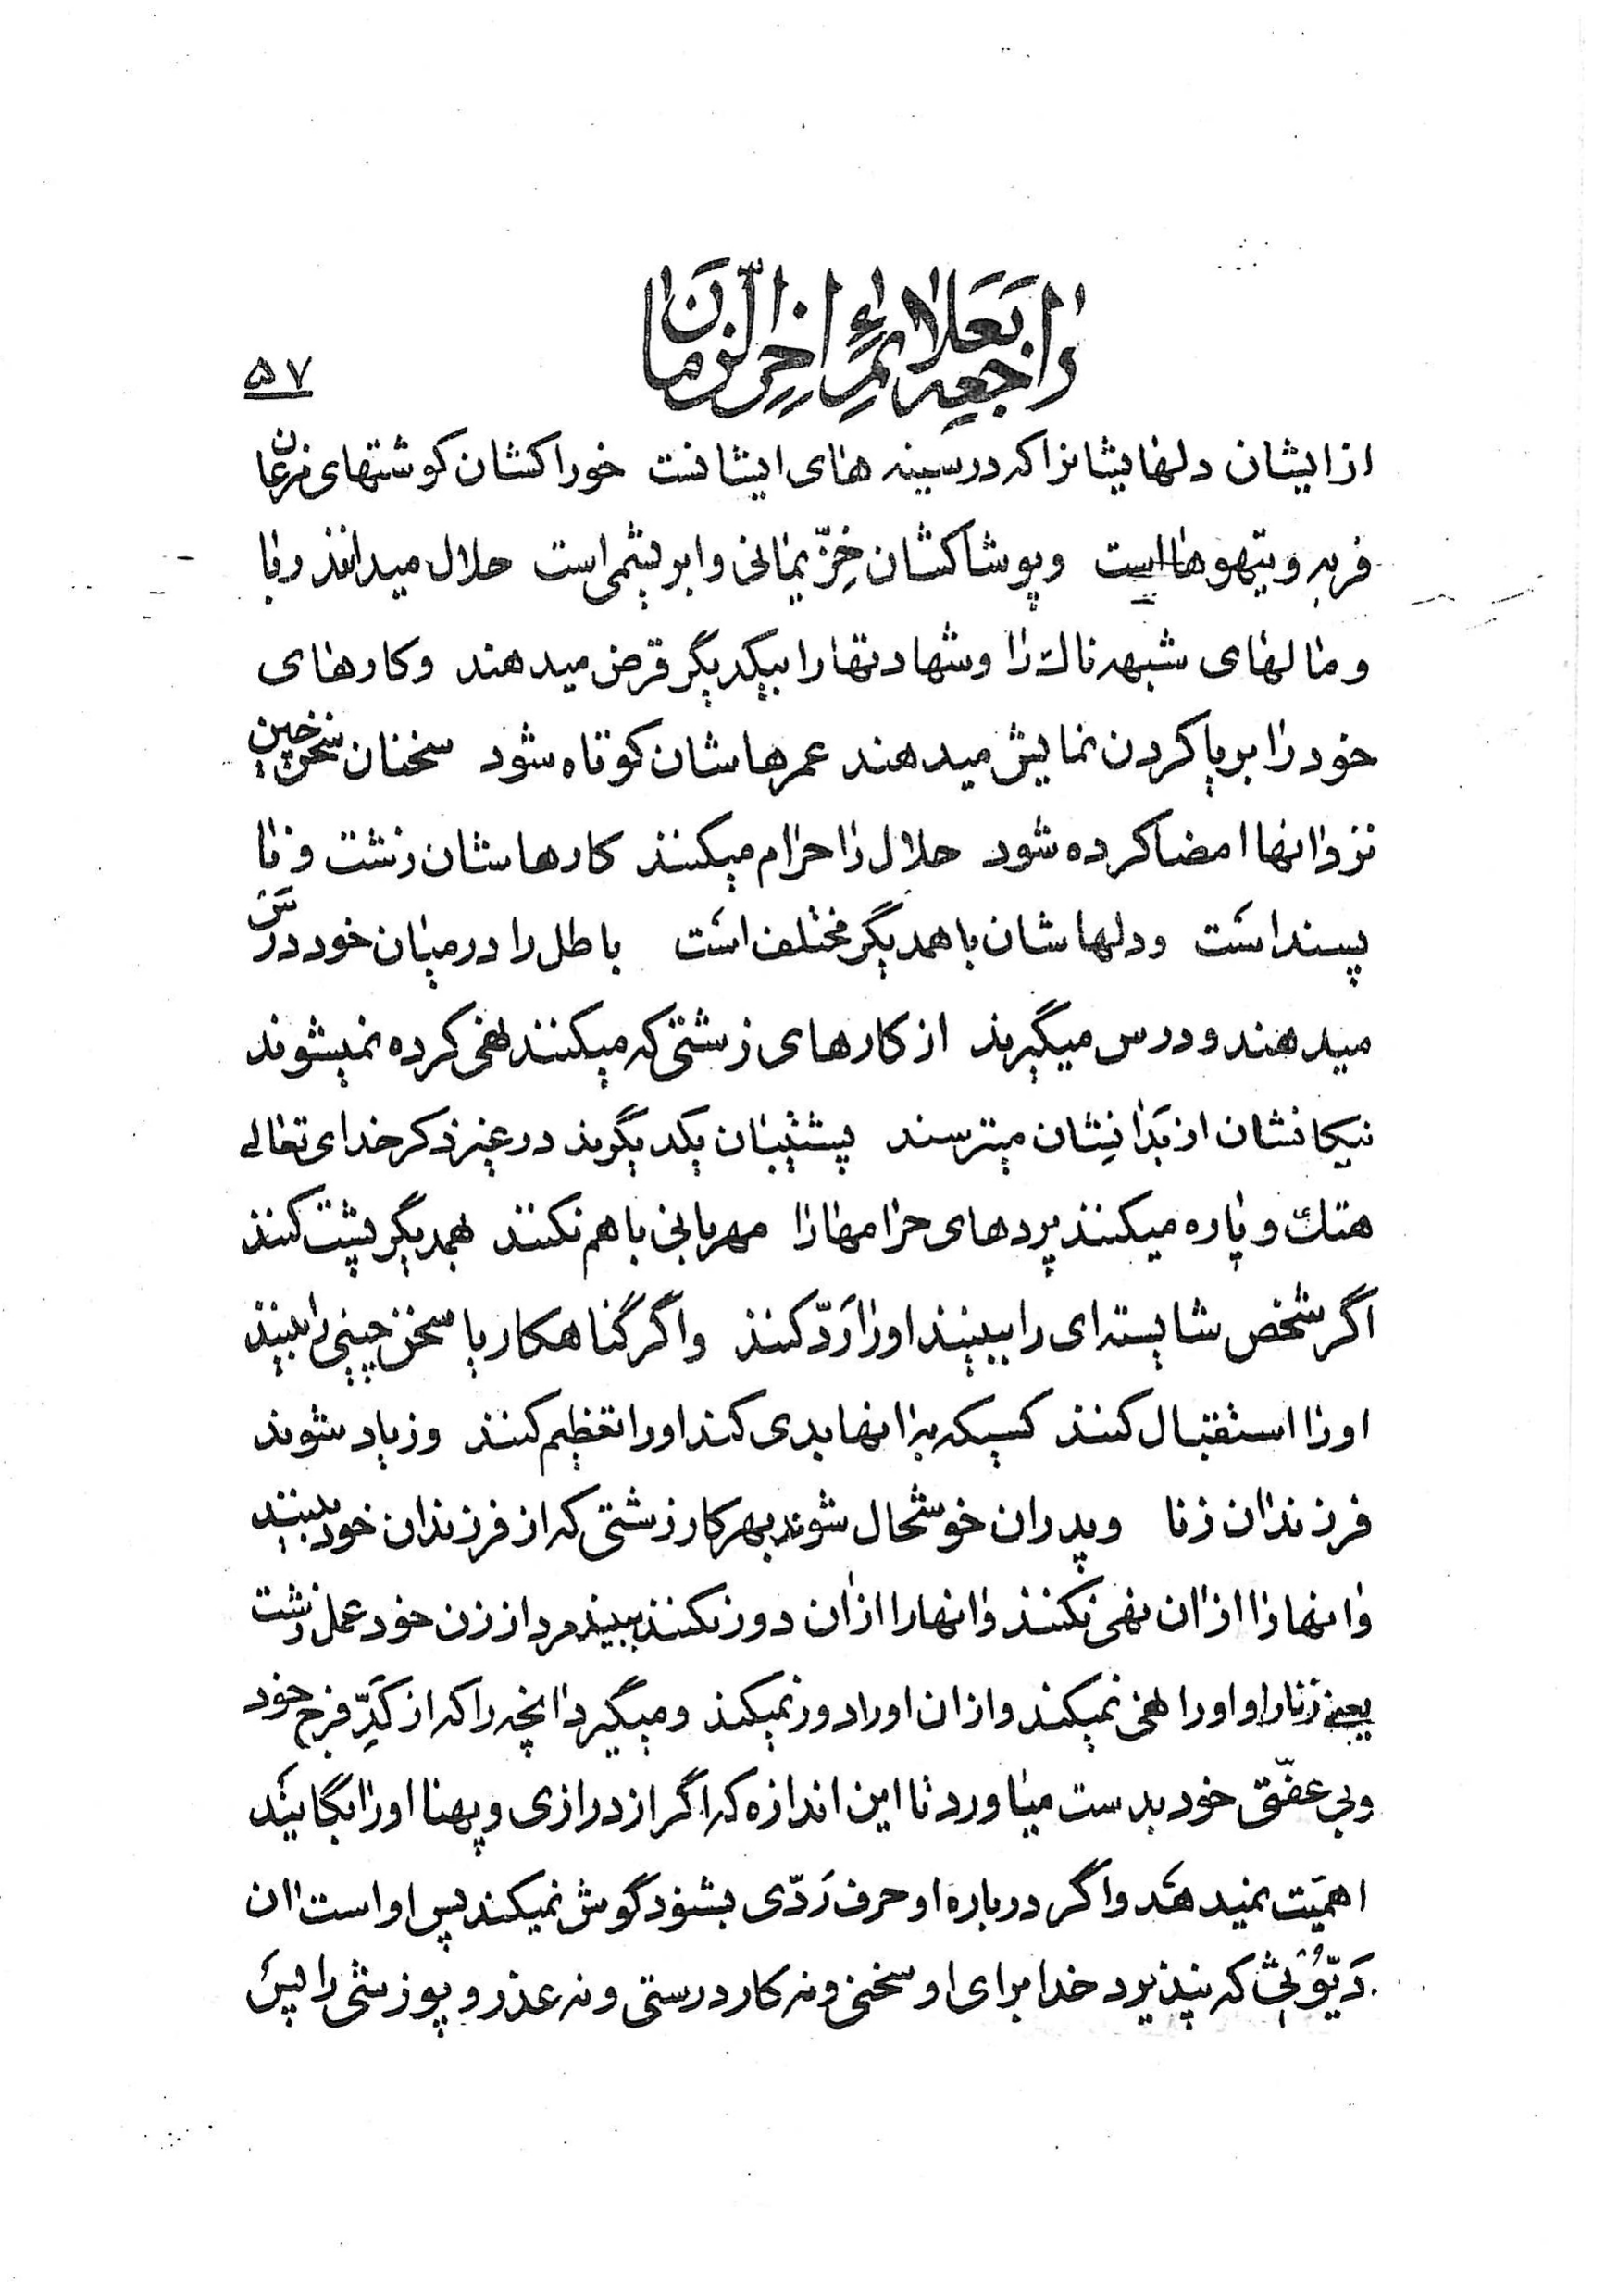 راجعه بعلائم اخر الزمان
۵۷
از ایشان دلهایشانرا که در سینه های ایشانست خوراکشان کوشتهای مرغان
فربه و تیهوها است وپوشاکشان خزّ یمانی وابریشمی است حلال میدانند ربا
و مالهای شبهه ناك را وشهادتها را بیکدیگر قرض میدهند وکارهای
خود را بریا کردن نمایش میدهند عمرهاشان کوتاه شود سخنان سخن چین
نزد انها امضا کرده شود حلال را حرام میکنند کارهاشان زشت و نا
پسند است ودلهاشان با همدیگر مختلف است باطل را در میان خود درس
میدهند و درس میگیرند از کارهای زشتی که میکنند نهی کرده نمیشوند
نیکانشان از بَدانِشان میترسند پشتیبان یکدیگرند در غیر ذکر خدای تعالی
هتك و پاره میکنند پردهای حرامها را مهربانی با هم نکنند بهمدیگر پشت کنند
اگر شخص شایسته ای را ببینند او را رَدّ کنند واگر گناهکار یا سخن چینی را ببینند
او را استقبال کنند کسیکه به انها بدی کند اورا تعظیم کنند وزیاد شوند
فرزندان زنا وپدران خوشحال شوند بهر کار زشتی که از فرزندان خود ببینند
و انها را از ان نهی نکنند و انها را از ان دور نکنند ببیند مرد از زن خود عمل زشت
یعنی زنا را و او را نهی نمیکند واز ان اورا دور نمیکند و میگیرد انچه را که از کَدِّ فرج خود
وبی عفّتی خود بدست میاورد تا این اندازه که اگر از درازی و پهنا او را بگایند
اهمیّت نمیدهد واگر درباره او حرف رَدّی بشنود گوش نمیکند پس او است ان
دَیّوُثی که نپذیرد خدا برای او سخنی ونه کار درستی ونه عذر و پوزشی را پس